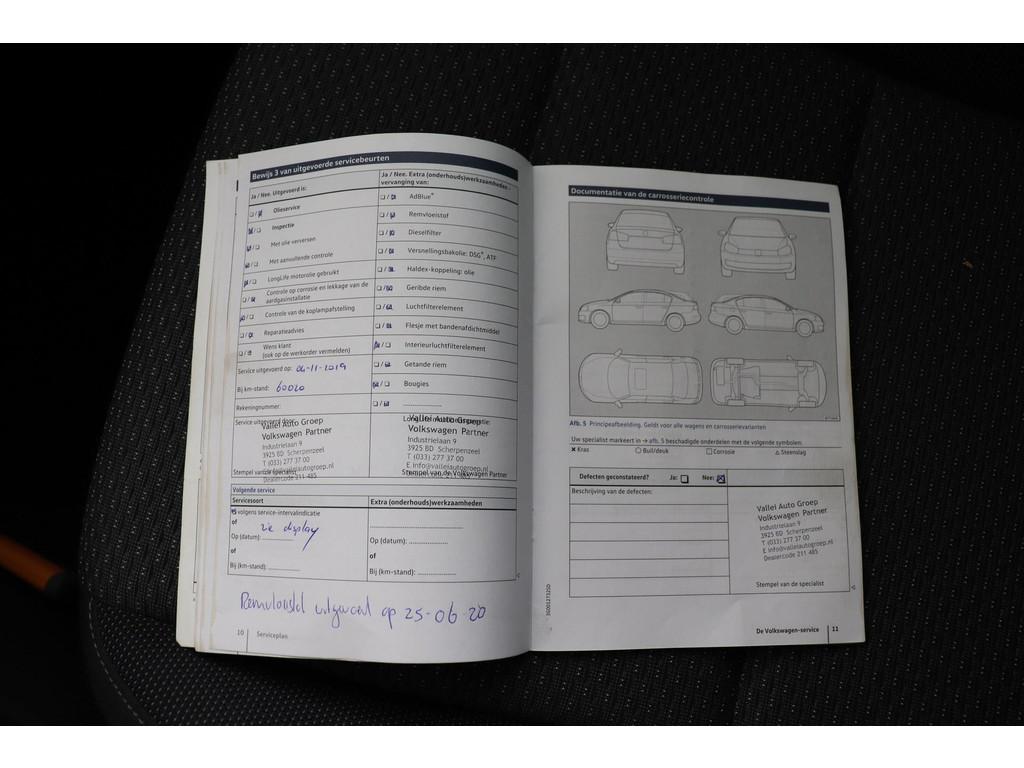 Bewijs 3 van uitgevoerde servicebeurten
Ja / Nee. Uitgevoerd is:
Olieservice
Inspectie
Met olie verversen
Met aanvullende controle
LongLife motorolie gebruikt
Controle op corrosie en lekkage van de
aardgasinstallatie
Controle van de koplampafstelling
Reparatieadvies
Wens klant
(ook op de werkorder vermelden)
Service uitgevoerd op: 04-11-2019
Bij km-stand: 60020
Rekeningnummer:
Service uitgevoerd door:
Vallei Auto Groep
Volkswagen Partner
Industrielaan 9
3925 BD Scherpenzeel
T (033) 277 37 00
E info@valleiautogroep.nl
Dealercode 211 485
Stempel van de specialist
Ja / Nee. Extra (onderhouds)werkzaamheden -
vervanging van:
AdBlue®
Remvloeistof
Dieselfilter
Versnellingsbakolie: DSG®, ATF
Haldex-koppeling: olie
Geribde riem
Luchtfilterelement
Flesje met bandenafdichtmiddel
Interieurluchtfilterelement
Getande riem
Bougies
Vallei Auto Groep
Volkswagen Partner
Industrielaan 9
3925 BD Scherpenzeel
T (033) 277 37 00
E info@valleiautogroep.nl
Stempel van de Volkswagen Partner
Volgende service
Servicesoort
Extra (onderhouds)werkzaamheden
volgens service-intervalindicatie
of
zie display
Op (datum): ............
of
Bij (km-stand): ............
Op (datum): ............
of
Bij (km-stand): ............
op 25-06-20
10 Serviceplan
Documentatie van de carrosseriecontrole
Afb. 5 Principeafbeelding. Geldt voor alle wagens en carrosserievarianten
Uw specialist markeert in → afb. 5 beschadigde onderdelen met de volgende symbolen:
Kras
Buil/deuk
Corrosie
Steenslag
Defecten geconstateerd? Ja: Nee:
Beschrijving van de defecten:
Vallei Auto Groep
Volkswagen Partner
Industrielaan 9
3925 BD Scherpenzeel
T (033) 277 37 00
E info@valleiautogroep.nl
Dealercode 211 485
Stempel van de specialist
De Volkswagen-service 11